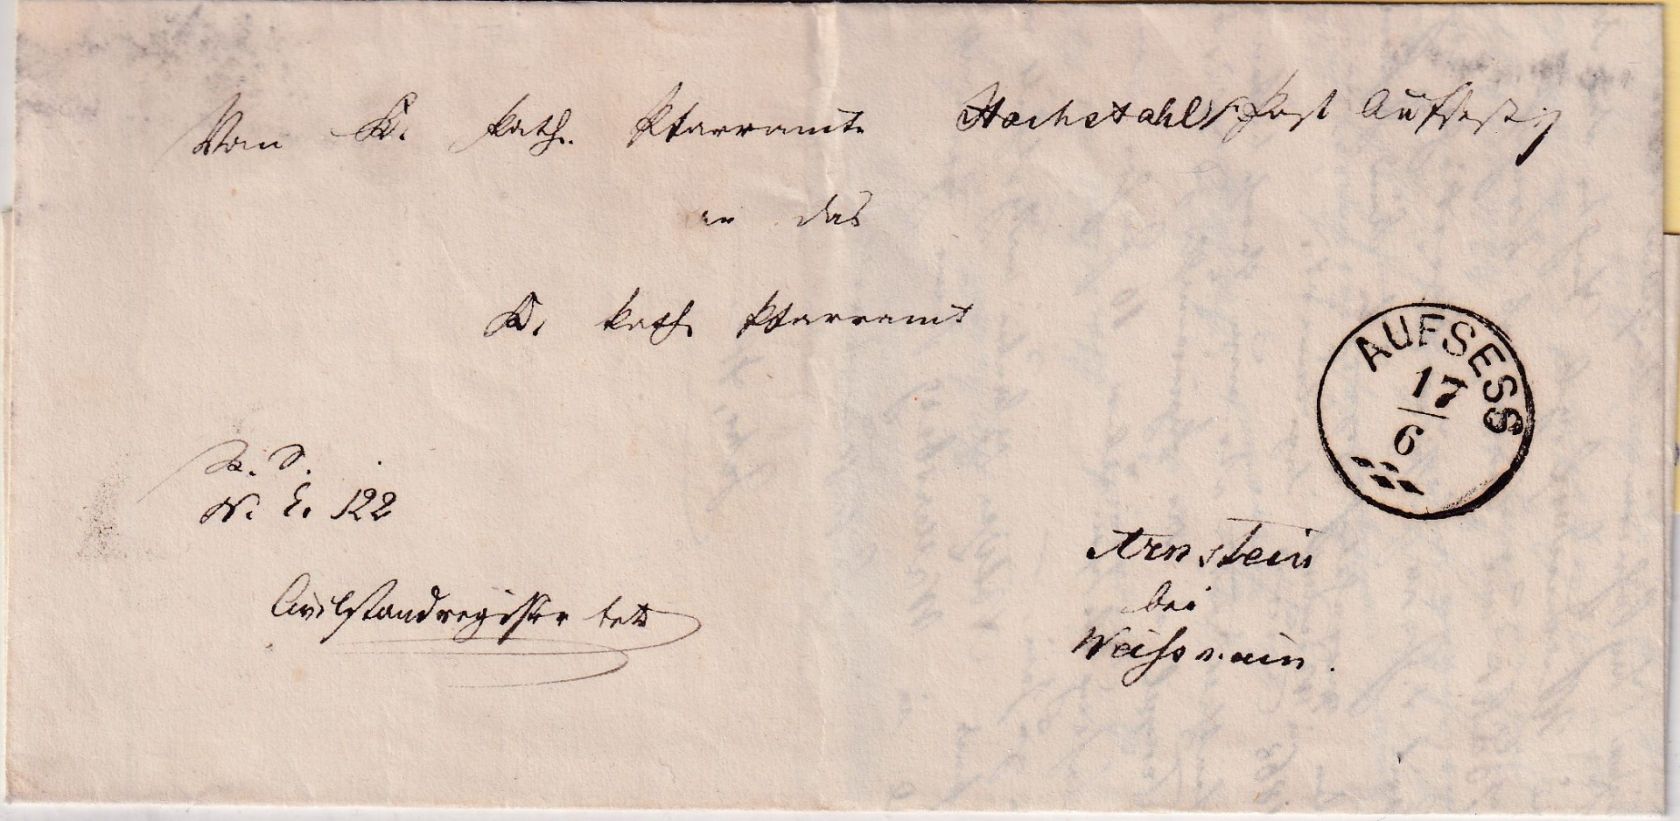 Vom K. kath. Pfarramte Hochstahl /:Post Aufseß:/
an das
K. kath. Pfarramt
AUFSESS
17
6
R. S.
N. E. 122
Arnstein
bei
Weißmain.
Civilstandregister betr.